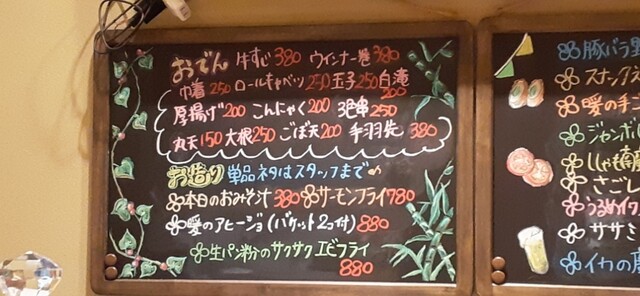 おでん 牛すじ 380 ウインナー巻 380
巾着 250 ロールキャベツ 250 玉子 250 白滝 200
厚揚げ 200 こんにゃく 200 3色串 250
丸天 150 大根 250 ごぼ天 200 手羽先 380
お造り 単品ネタはスタッフまで
本日のおみそ汁 380 サーモンフライ 780
暖のアヒージョ(バケット2コ付) 880
生パン粉のサクサクエビフライ
880
豚バラ
スナック
暖の手
ジャンボ
しゃも
さごし
うるめイワ
ササミ
イカの